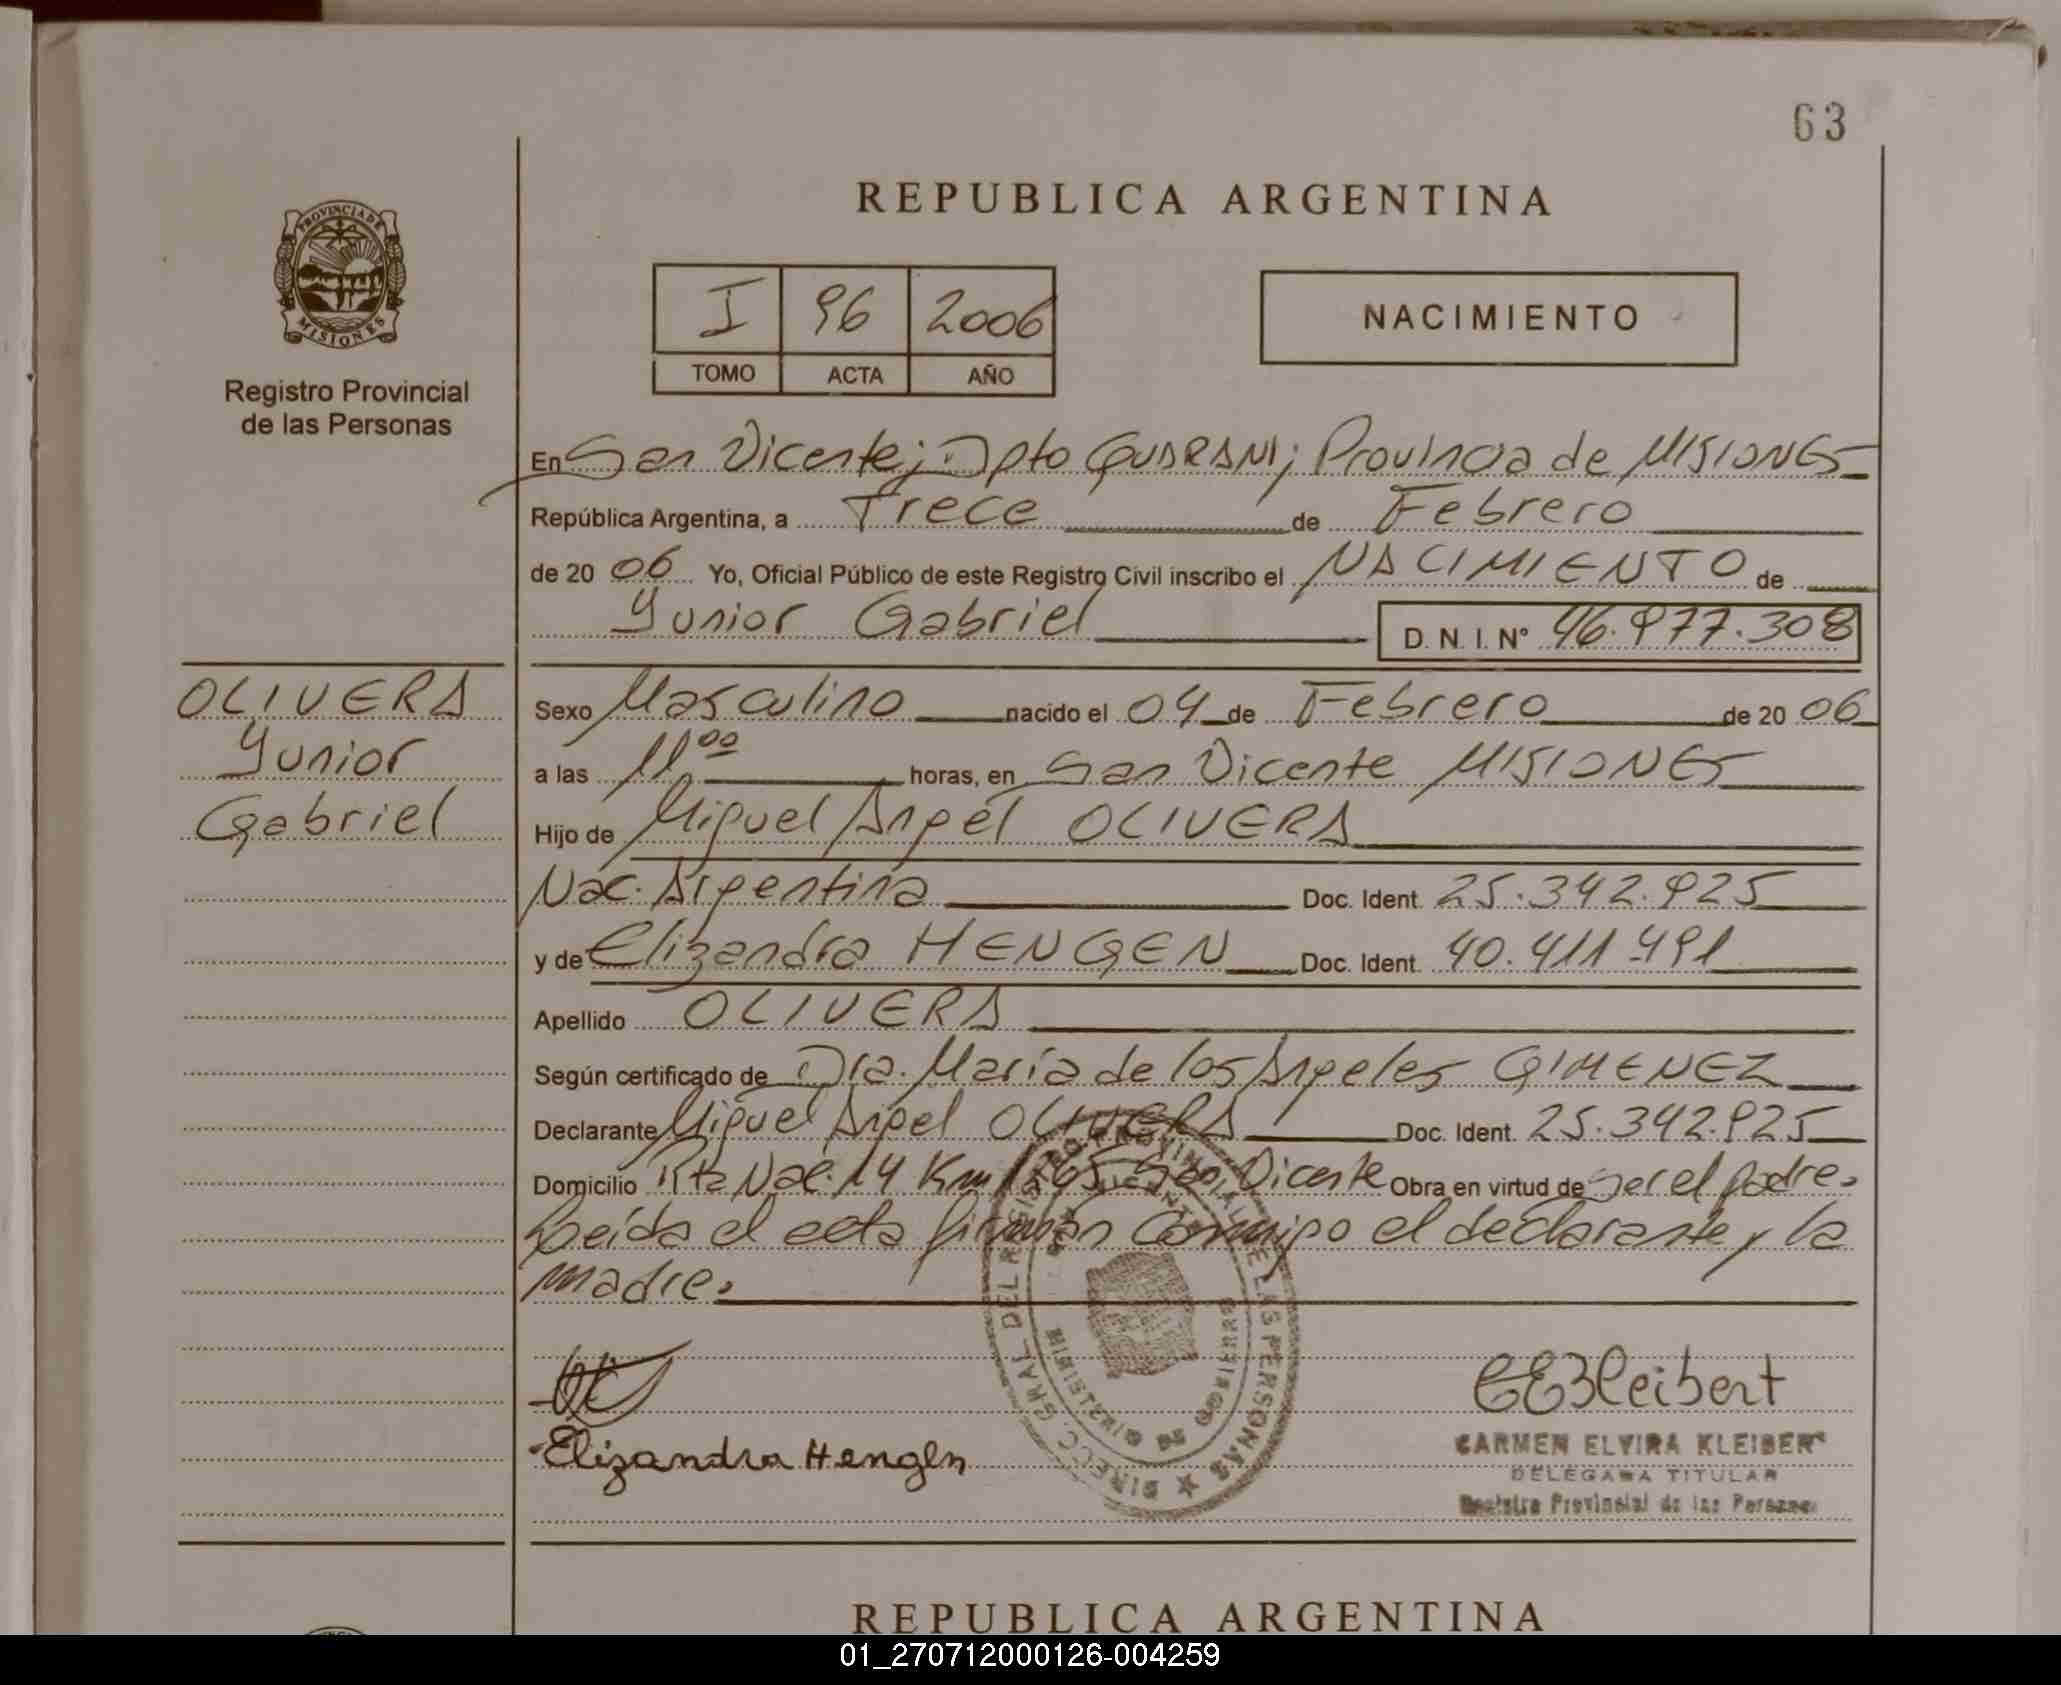 63
REPUBLICA ARGENTINA
PROVINCIA DE
MISIONES
Registro Provincial
de las Personas
I 96 2006
TOMO ACTA AÑO
NACIMIENTO
En San Vicente; Dpto GUARANI; Provincia de MISIONES
República Argentina, a Trece de Febrero
de 20 06 Yo, Oficial Público de este Registro Civil inscribo el NACIMIENTO de
Yunior Gabriel D. N. I. Nº 46.977.308
OLIVERA
Yunior
Gabriel
Sexo Masculino nacido el 04 de Febrero de 20 06
a las 11,00 horas, en San Vicente MISIONES
Hijo de Miguel Angel OLIVERA
Nac. Argentina Doc. Ident. 25.342.925
y de Elizandra HENGEN Doc. Ident. 40.411.491
Apellido OLIVERA
Según certificado de Dra. María de los Angeles GIMENEZ
Declarante Miguel Angel OLIVERA Doc. Ident. 25.342.925
Domicilio Rta Nac. 14 Km San Vicente Obra en virtud de ser el padre.
Leída el acta firman conmigo el declarante y la
madre.
DIRECC. GRAL DEL REGISTRO PROVINCIAL DE LAS PERSONAS
Elizandra Hengen
CEKleibert
CARMEN ELVIRA KLEIBERT
DELEGADA TITULAR
Registro Provincial de las Personas
REPUBLICA ARGENTINA
01_270712000126-004259